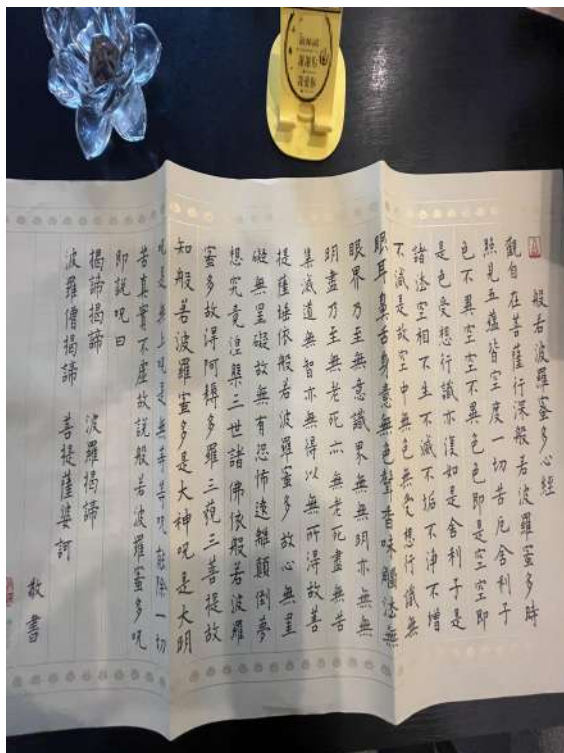 謝謝你
我愛你
般若波羅蜜多心經
觀自在菩薩行深般若波羅蜜多時
照見五蘊皆空度一切苦厄舍利子
色不異空空不異色色即是空空即
是色受想行識亦復如是舍利子是
諸法空相不生不滅不垢不淨不增
不減是故空中無色無受想行識無
眼耳鼻舌身意無色聲香味觸法無
眼界乃至無意識界無無明亦無無
明盡乃至無老死亦無老死盡無苦
集滅道無智亦無得以無所得故菩
提薩埵依般若波羅蜜多故心無罣
礙無罣礙故無有恐怖遠離顛倒夢
想究竟涅槃三世諸佛依般若波羅
蜜多故得阿耨多羅三藐三菩提故
知般若波羅蜜多是大神咒是大明
咒是無上咒是無等等咒能除一切
苦真實不虛故說般若波羅蜜多咒
即說咒曰
揭諦揭諦 波羅揭諦
波羅僧揭諦 菩提薩婆訶
敬書